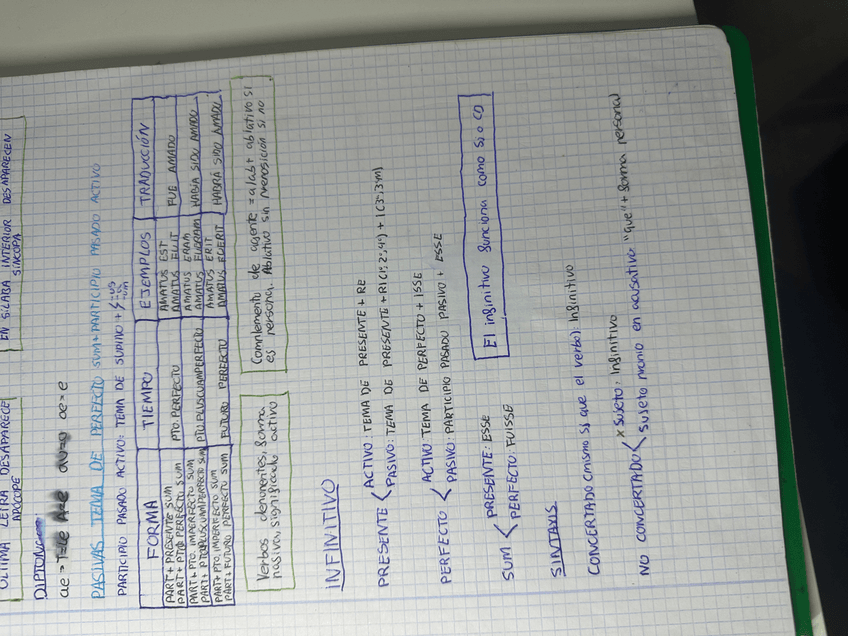 ÚLTIMA LETRA DESAPARECE
APÓCOPE
EN SÍLABA INTERIOR DESAPARECEN
SÍNCOPA
DIPTON
ae > e oe > e
PASIVAS TEMA DE PERFECTO SUM+PARTICIPIO PASADO ACTIVO
PARTICIPIO PASADO ACTIVO: TEMA DE SUPINO + -us -a -um
FORMA TIEMPO EJEMPLOS TRADUCCIÓN
PART + PRESENTE SUM PTO. PERFECTO AMATUS EST FUE AMADO
PART + PTO PERFECTO SUM AMATUS FUIT
PART + PTO. IMPERFECTO SUM PTO. PLUSCUAMPERFECTO AMATUS ERAM HABÍA SIDO AMADO
PART + PTO PLUSCUAMPERFECTO SUM AMATUS FUERAM
PART + PTO. IMPERFECTO SUM FUTURO PERFECTO AMATUS ERIT HABRÁ SIDO AMADO
PART + FUTURO PERFECTO SUM AMATUS FUERIT
Verbos deponentes, forma
pasiva, significado activo
Complemento de agente = a/ab + ablativo si
es persona. Ablativo sin preposición si no
INFINITIVO
PRESENTE
ACTIVO: TEMA DE PRESENTE + RE
PASIVO: TEMA DE PRESENTE + RI (1ª, 2ª, 4ª) + I (3ª, 3ªM)
PERFECTO
ACTIVO TEMA DE PERFECTO + ISSE
PASIVO: PARTICIPIO PASADO PASIVO + ESSE
SUM
PRESENTE: ESSE
PERFECTO: FUISSE
El infinitivo funciona como S; o CD
SINTAXIS
CONCERTADO (mismo Sj que el verbo) Infinitivo
NO CONCERTADO
x Sujeto: Infinitivo
Sujeto propio en acusativo: "que" + forma personal